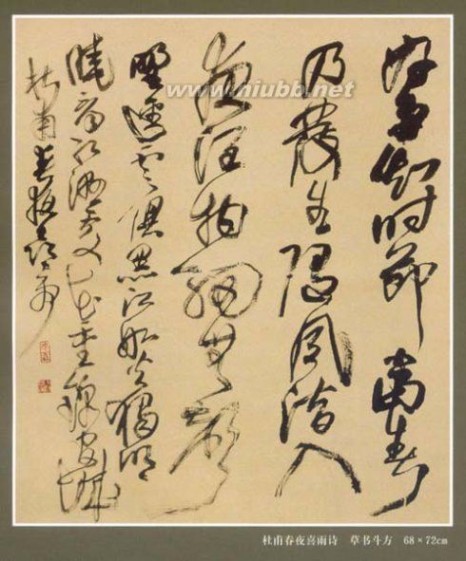 好雨知时節當春
乃發生随風潜入
夜润物細無聲
野径云俱黑江船火獨明
晓看红湿處花重錦官城
杜甫春夜喜雨
www.niubb.net
杜甫春夜喜雨诗 草书斗方 68×72cm